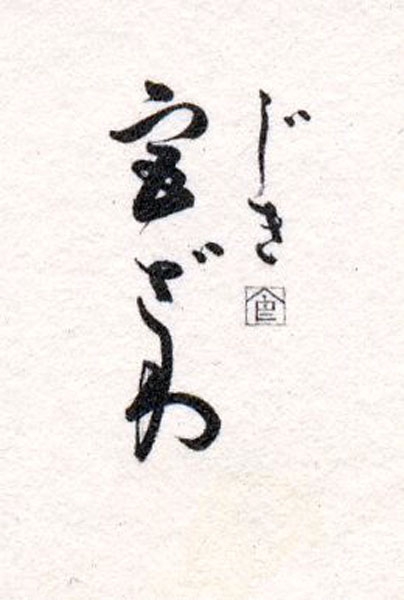 じき
宮ざわ